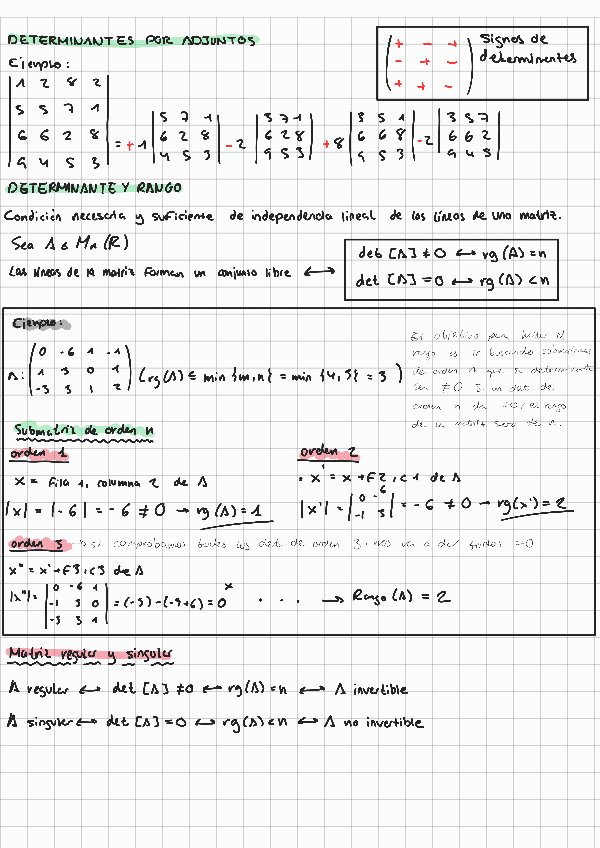 DETERMINANTES POR ADJUNTOS
Signos de
determinentes
+ - +
- + -
+ + -
Ejemplo:
1 2 8 2
5 5 7 1
6 6 2 8
9 4 5 3
= +1 | 5 7 1 | -2 | 3 7 1 | +8 | 3 5 1 | -2 | 3 5 7 |
6 2 8 | 6 2 8 | 6 6 8 | 6 6 2
4 5 3 | 9 5 3 | 9 4 3 | 9 4 5
DETERMINANTE Y RANGO
Condición necesaria y suficiente de independencia lineal de las líneas de una matriz.
Sea A ∈ Mn (R)
Las líneas de la matriz forman un conjunto libre ↔
det [A] ≠ 0 ↔ rg (A) = n
det [A] = 0 ↔ rg (A) < n
Ejemplo:
A: ( 0 -6 1 -1
1 3 0 1
-3 3 1 2 ) ( rg (A) ≤ min {m,n} = min {4,3} = 3 )
El objetivo para hallar el
rango es ir buscando submatrices
de orden n que su determinante
sea ≠ 0. Si un det de
orden n da ≠0, el rango
de la matriz será de n.
Submatriz de orden n
orden 1
x = fila 1, columna 2 de A
|x| = |-6| = -6 ≠ 0 → rg (A) = 1
orden 2
• x' = x + F2, C1 de A
|x'| = | 0 -6
-1 3 | = -6 ≠ 0 → rg (x') = 2
orden 3 si comprobamos todos los det de orden 3, nos van a dar todos =0
x'' = x' + F3, C3 de A
|x''| = | 0 -6 1
-1 3 0
-3 3 1 | = (-3) - (-9+6) = 0 x . . . → Rango (A) = 2
Matriz regular y singular
A regular ↔ det [A] ≠ 0 ↔ rg (A) = n ↔ A invertible
A singular ↔ det [A] = 0 ↔ rg (A) < n ↔ A no invertible